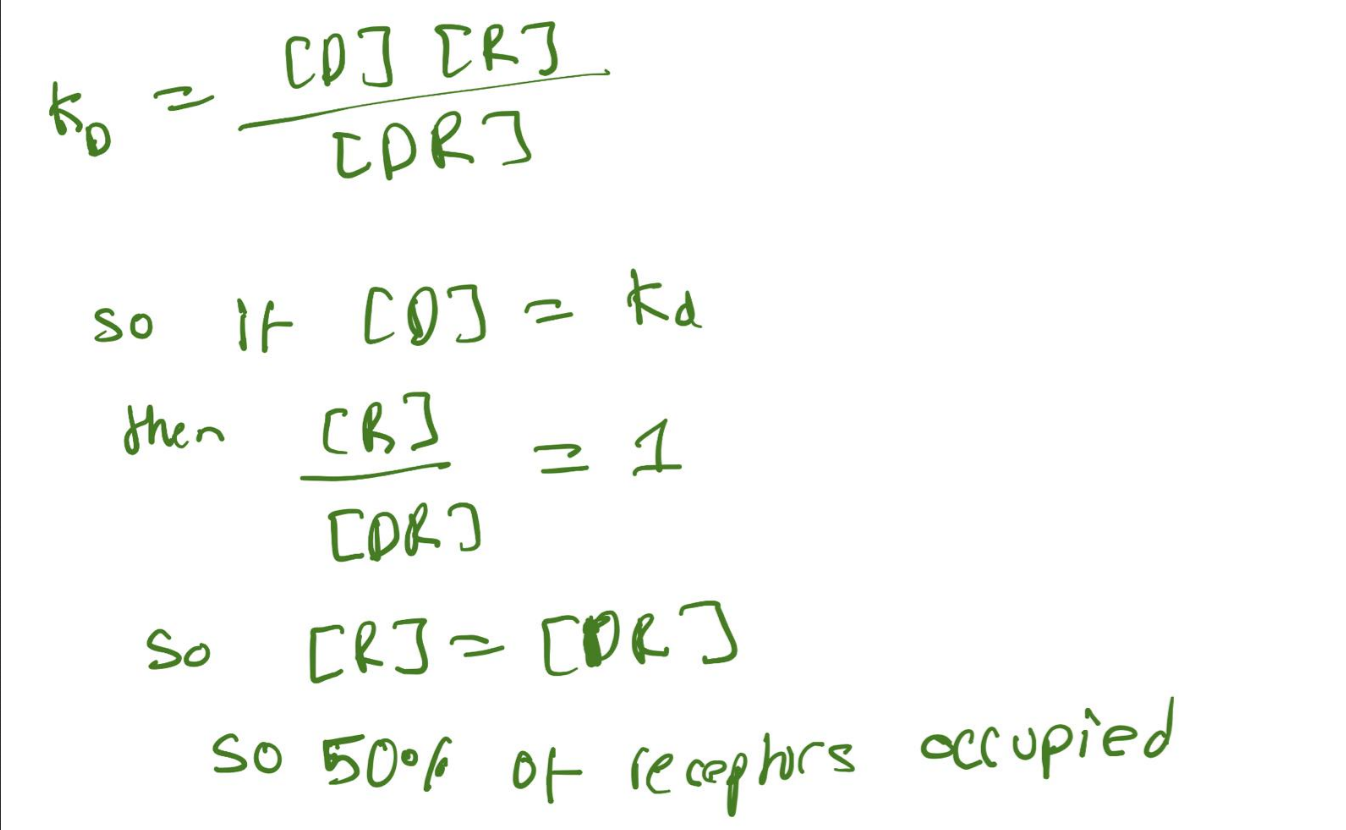 K_D = [D] [R] / [DR]
so if [D] = K_d
then [R] / [DR] = 1
So [R] = [DR]
So 50% of receptors occupied